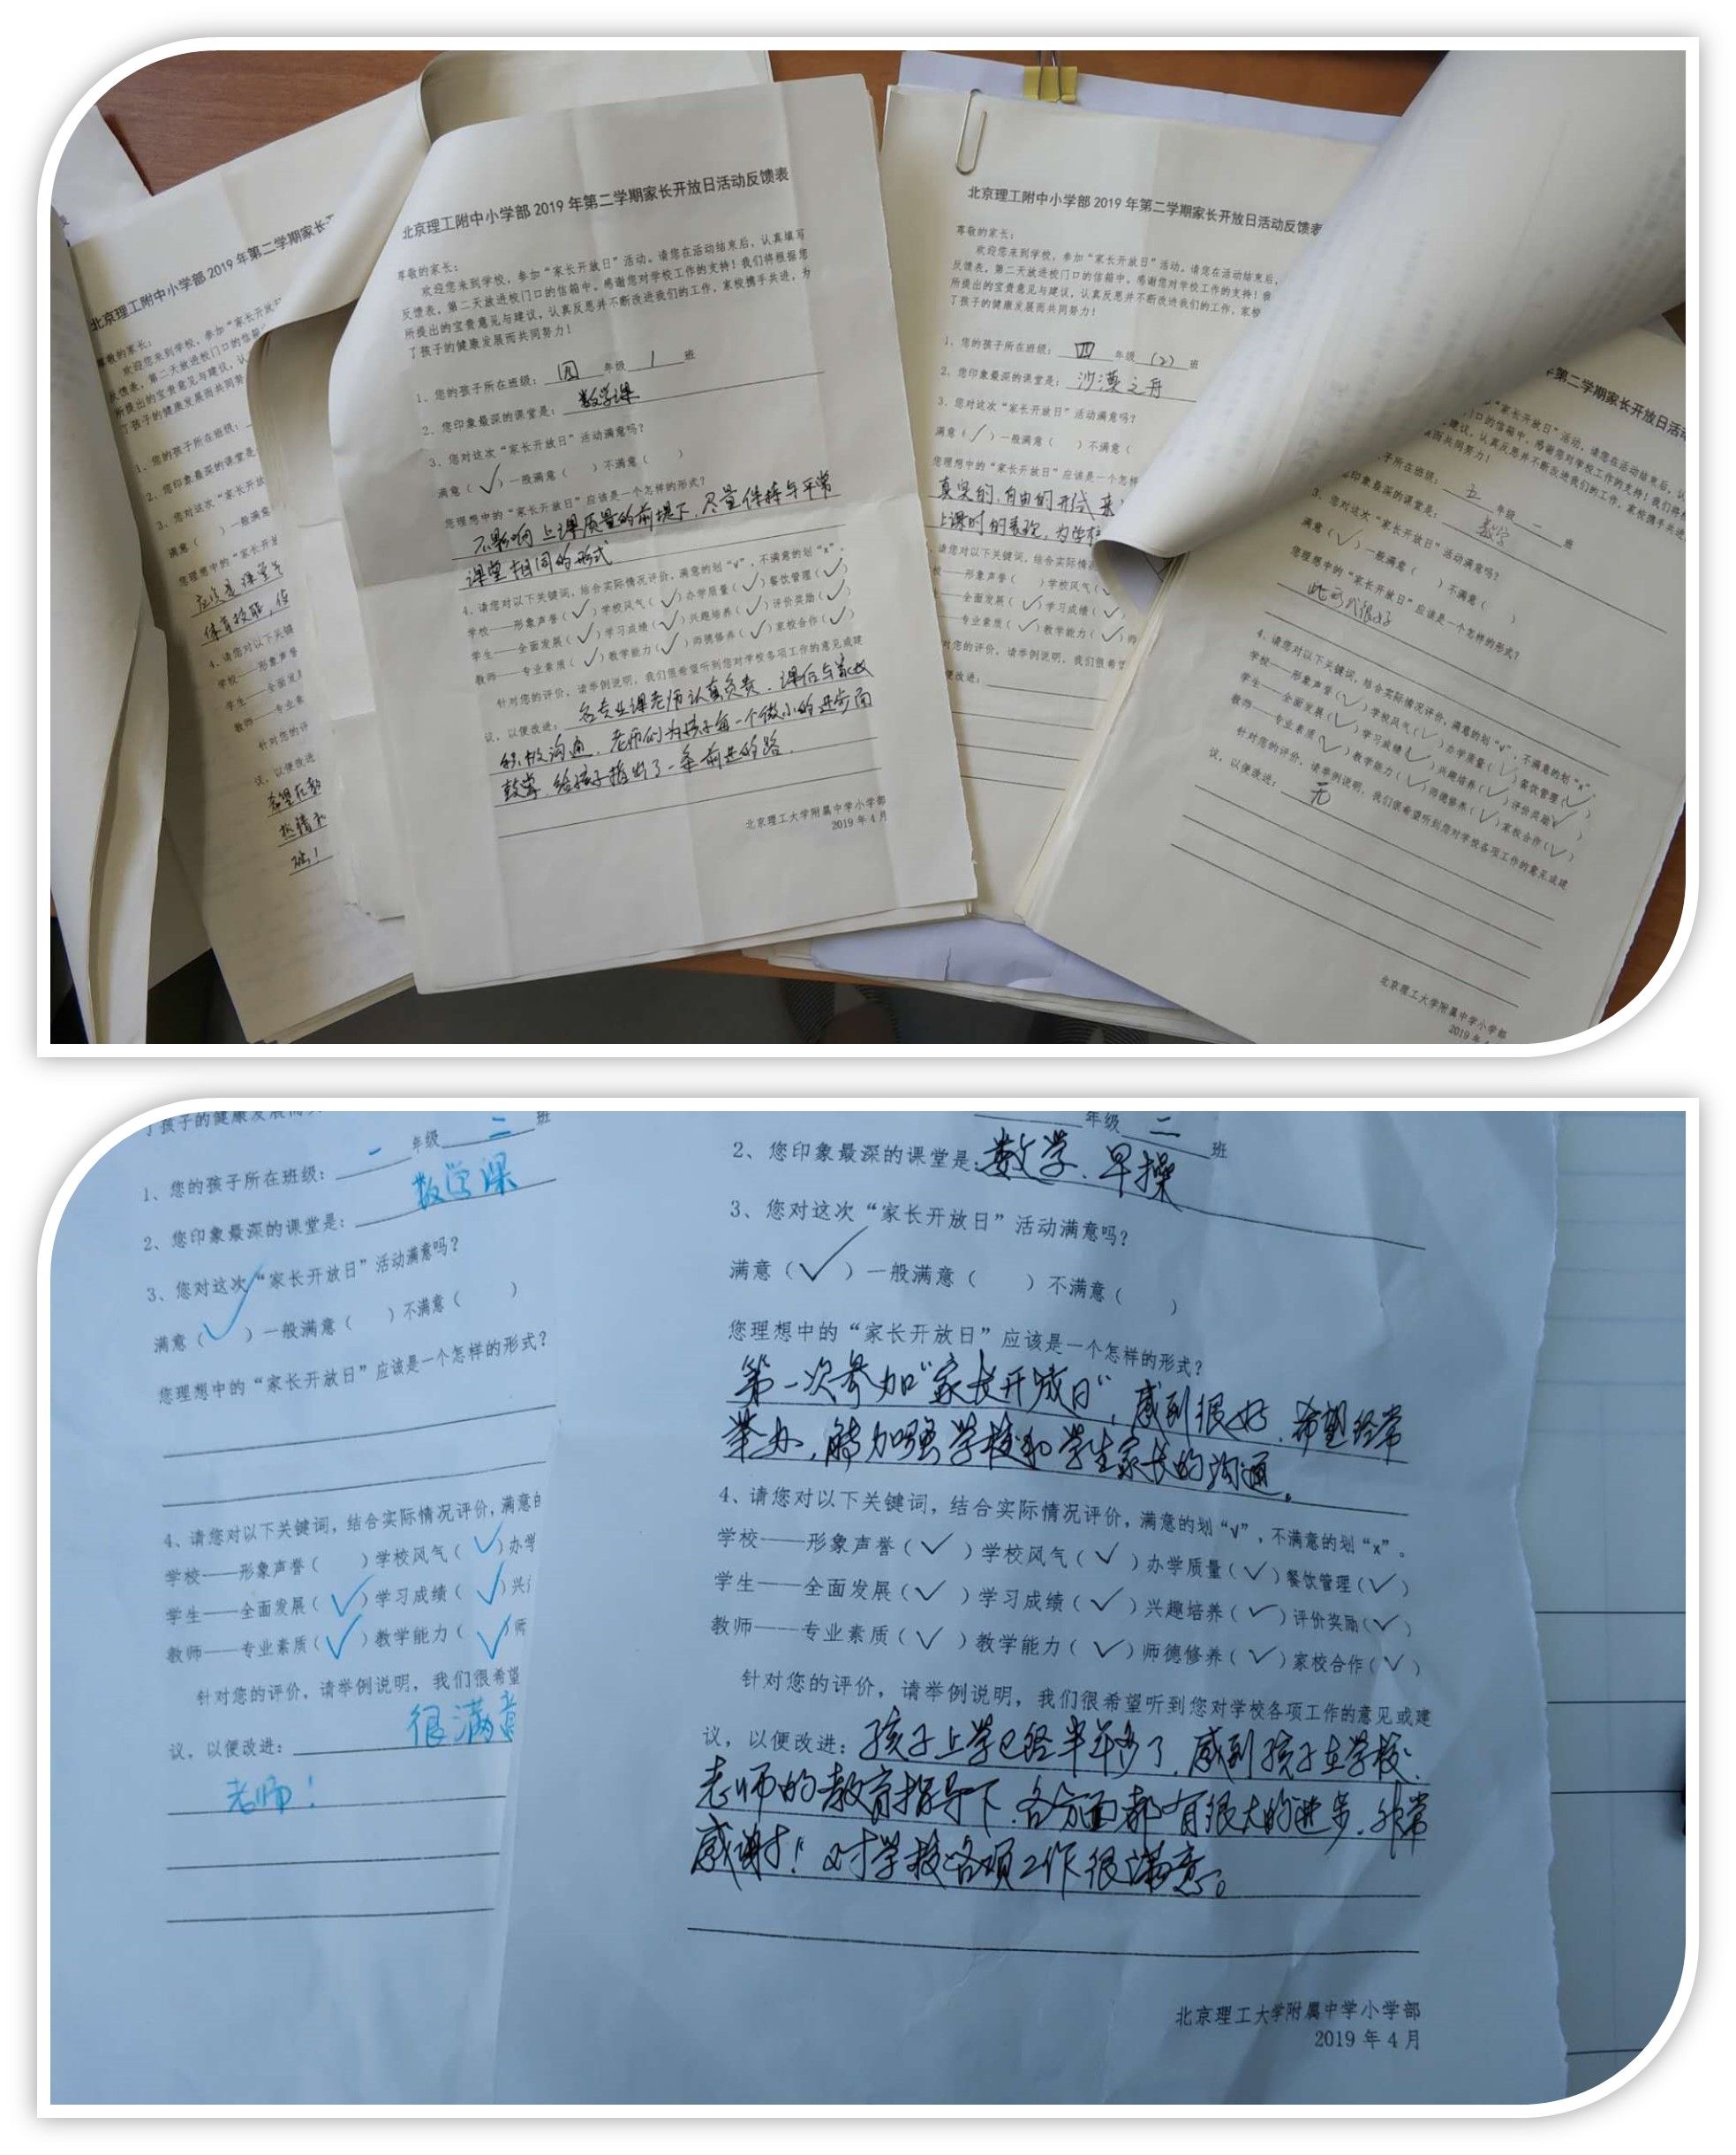 北京理工附中小学部2019年第二学期家长
尊敬的家长：
欢迎您来到学校，参加“家长开放
反馈表，第二天放进校门口的信箱
所提出的宝贵意见与建议，认
了孩子的健康发展而共同努
1、您的孩子所在班级：
2、您印象最深的课堂是
3、您对这次“家长开放
满意（ ）一般满意
您理想中的“家长开
4、请您对以下关键
学校——形象声誉
学生——全面发
教师——专业素
针对您的评
议，以便改进
北京理工附中小学部2019年第二学期家长开放日活动反馈表
尊敬的家长：
欢迎您来到学校，参加“家长开放日”活动。请您在活动结束后，认真填写
反馈表，第二天放进校门口的信箱中。感谢您对学校工作的支持！我们将根据您
所提出的宝贵意见与建议，认真反思并不断改进我们的工作，家校携手共进，为
了孩子的健康发展而共同努力！
1、您的孩子所在班级：四 年级 1 班
2、您印象最深的课堂是：数学课
3、您对这次“家长开放日”活动满意吗？
满意（√）一般满意（ ）不满意（ ）
您理想中的“家长开放日”应该是一个怎样的形式？
不影响上课质量的前提下，尽量保持与平常
课堂相同的形式
4、请您对以下关键词，结合实际情况评价，满意的划“v”，不满意的划“x”。
学校——形象声誉（√）学校风气（√）办学质量（√）餐饮管理（√）
学生——全面发展（√）学习成绩（√）兴趣培养（√）评价奖励（√）
教师——专业素质（√）教学能力（√）师德修养（√）家校合作（√）
针对您的评价，请举例说明，我们很希望听到您对学校各项工作的意见或建
议，以便改进：各专业课老师认真负责，课后与家长
积极沟通，老师们为孩子每一个微小的进步而
鼓掌，给孩子指出了一条前进的路．
北京理工大学附属中学小学部
2019年4月
北京理工附中小学部2019年第二学期家长开放日活动反馈表
尊敬的家长：
欢迎您来到学校，参加“家长开放日”活动。请您在活动结束后，
反馈表，第二天放进校门口的信箱中。感谢您对学校工作的支持！我
所提出的宝贵意见与建议，认真反思并不断改进我们的工作，家校
了孩子的健康发展而共同努力！
1、您的孩子所在班级：四 年级（2）班
2、您印象最深的课堂是：沙漠之舟
3、您对这次“家长开放日”活动满意吗？
满意（√）一般满意（ ）不满意（
您理想中的“家长开放日”应该是一个怎样
真实的，自由的形式，来
上课时的表现，为学校
、请您对以下关键词，结合实际情况
校——形象声誉（ ）学校风气（√
——全面发展（√）学习成绩（√
——专业素质（√）教学能力（√）师
对您的评价，请举例说明，我们很希望
便改进：
第二学期家长开放日活动
“家长开放日”活动。请您在活动结束后，认
门口的信箱中。感谢您对学校工作的支持！我们将根
建议，认真反思并不断改进我们的工作，家校携手共进，
而共同努力！
子所在班级：五 年级 一 班
印象最深的课堂是：数学
3、您对这次“家长开放日”活动满意吗？
满意（√）一般满意（ ）不满意（ ）
您理想中的“家长开放日”应该是一个怎样的形式？
此形式很好
4、请您对以下关键词，结合实际情况评价，满意的划“v”，不满意的划“x”
学校——形象声誉（√）学校风气（√）办学质量（√）餐饮管理（√
学生——全面发展（√）学习成绩（√）兴趣培养（√）评价奖励（√）
教师——专业素质（√）教学能力（√）师德修养（√）家校合作（√）
针对您的评价，请举例说明，我们很希望听到您对学校各项工作的意见或建
议，以便改进：无
北京理工大学附属中学小学部
2019年4
了孩子的健康发展而
1、您的孩子所在班级：一 年级 二 班
2、您印象最深的课堂是：数学课
3、您对这次“家长开放日”活动满意吗？
满意（√）一般满意（ ）不满意（ ）
您理想中的“家长开放日”应该是一个怎样的形式？
4、请您对以下关键词，结合实际情况评价，满意的
学校——形象声誉（ ）学校风气（√）办学
学生——全面发展（√）学习成绩（√）兴
教师——专业素质（√）教学能力（√）师
针对您的评价，请举例说明，我们很希望
议，以便改进：很满意
老师！
年级 二 班
2、您印象最深的课堂是：数学、早操
3、您对这次“家长开放日”活动满意吗？
满意（√）一般满意（ ）不满意（ ）
您理想中的“家长开放日”应该是一个怎样的形式？
第一次参加“家长开放日”，感到很好，希望经常
举办，能加强学校和学生家长的沟通。
4、请您对以下关键词，结合实际情况评价，满意的划“v”，不满意的划“x”。
学校——形象声誉（√）学校风气（√）办学质量（√）餐饮管理（√）
学生——全面发展（√）学习成绩（√）兴趣培养（√）评价奖励（√）
教师——专业素质（√）教学能力（√）师德修养（√）家校合作（√）
针对您的评价，请举例说明，我们很希望听到您对学校各项工作的意见或建
议，以便改进：孩子上学已经半年多了，感到孩子在学校、
老师的教育指导下，各方面都有很大的进步，非常
感谢！对学校各项工作很满意。
北京理工大学附属中学小学部
2019年4月